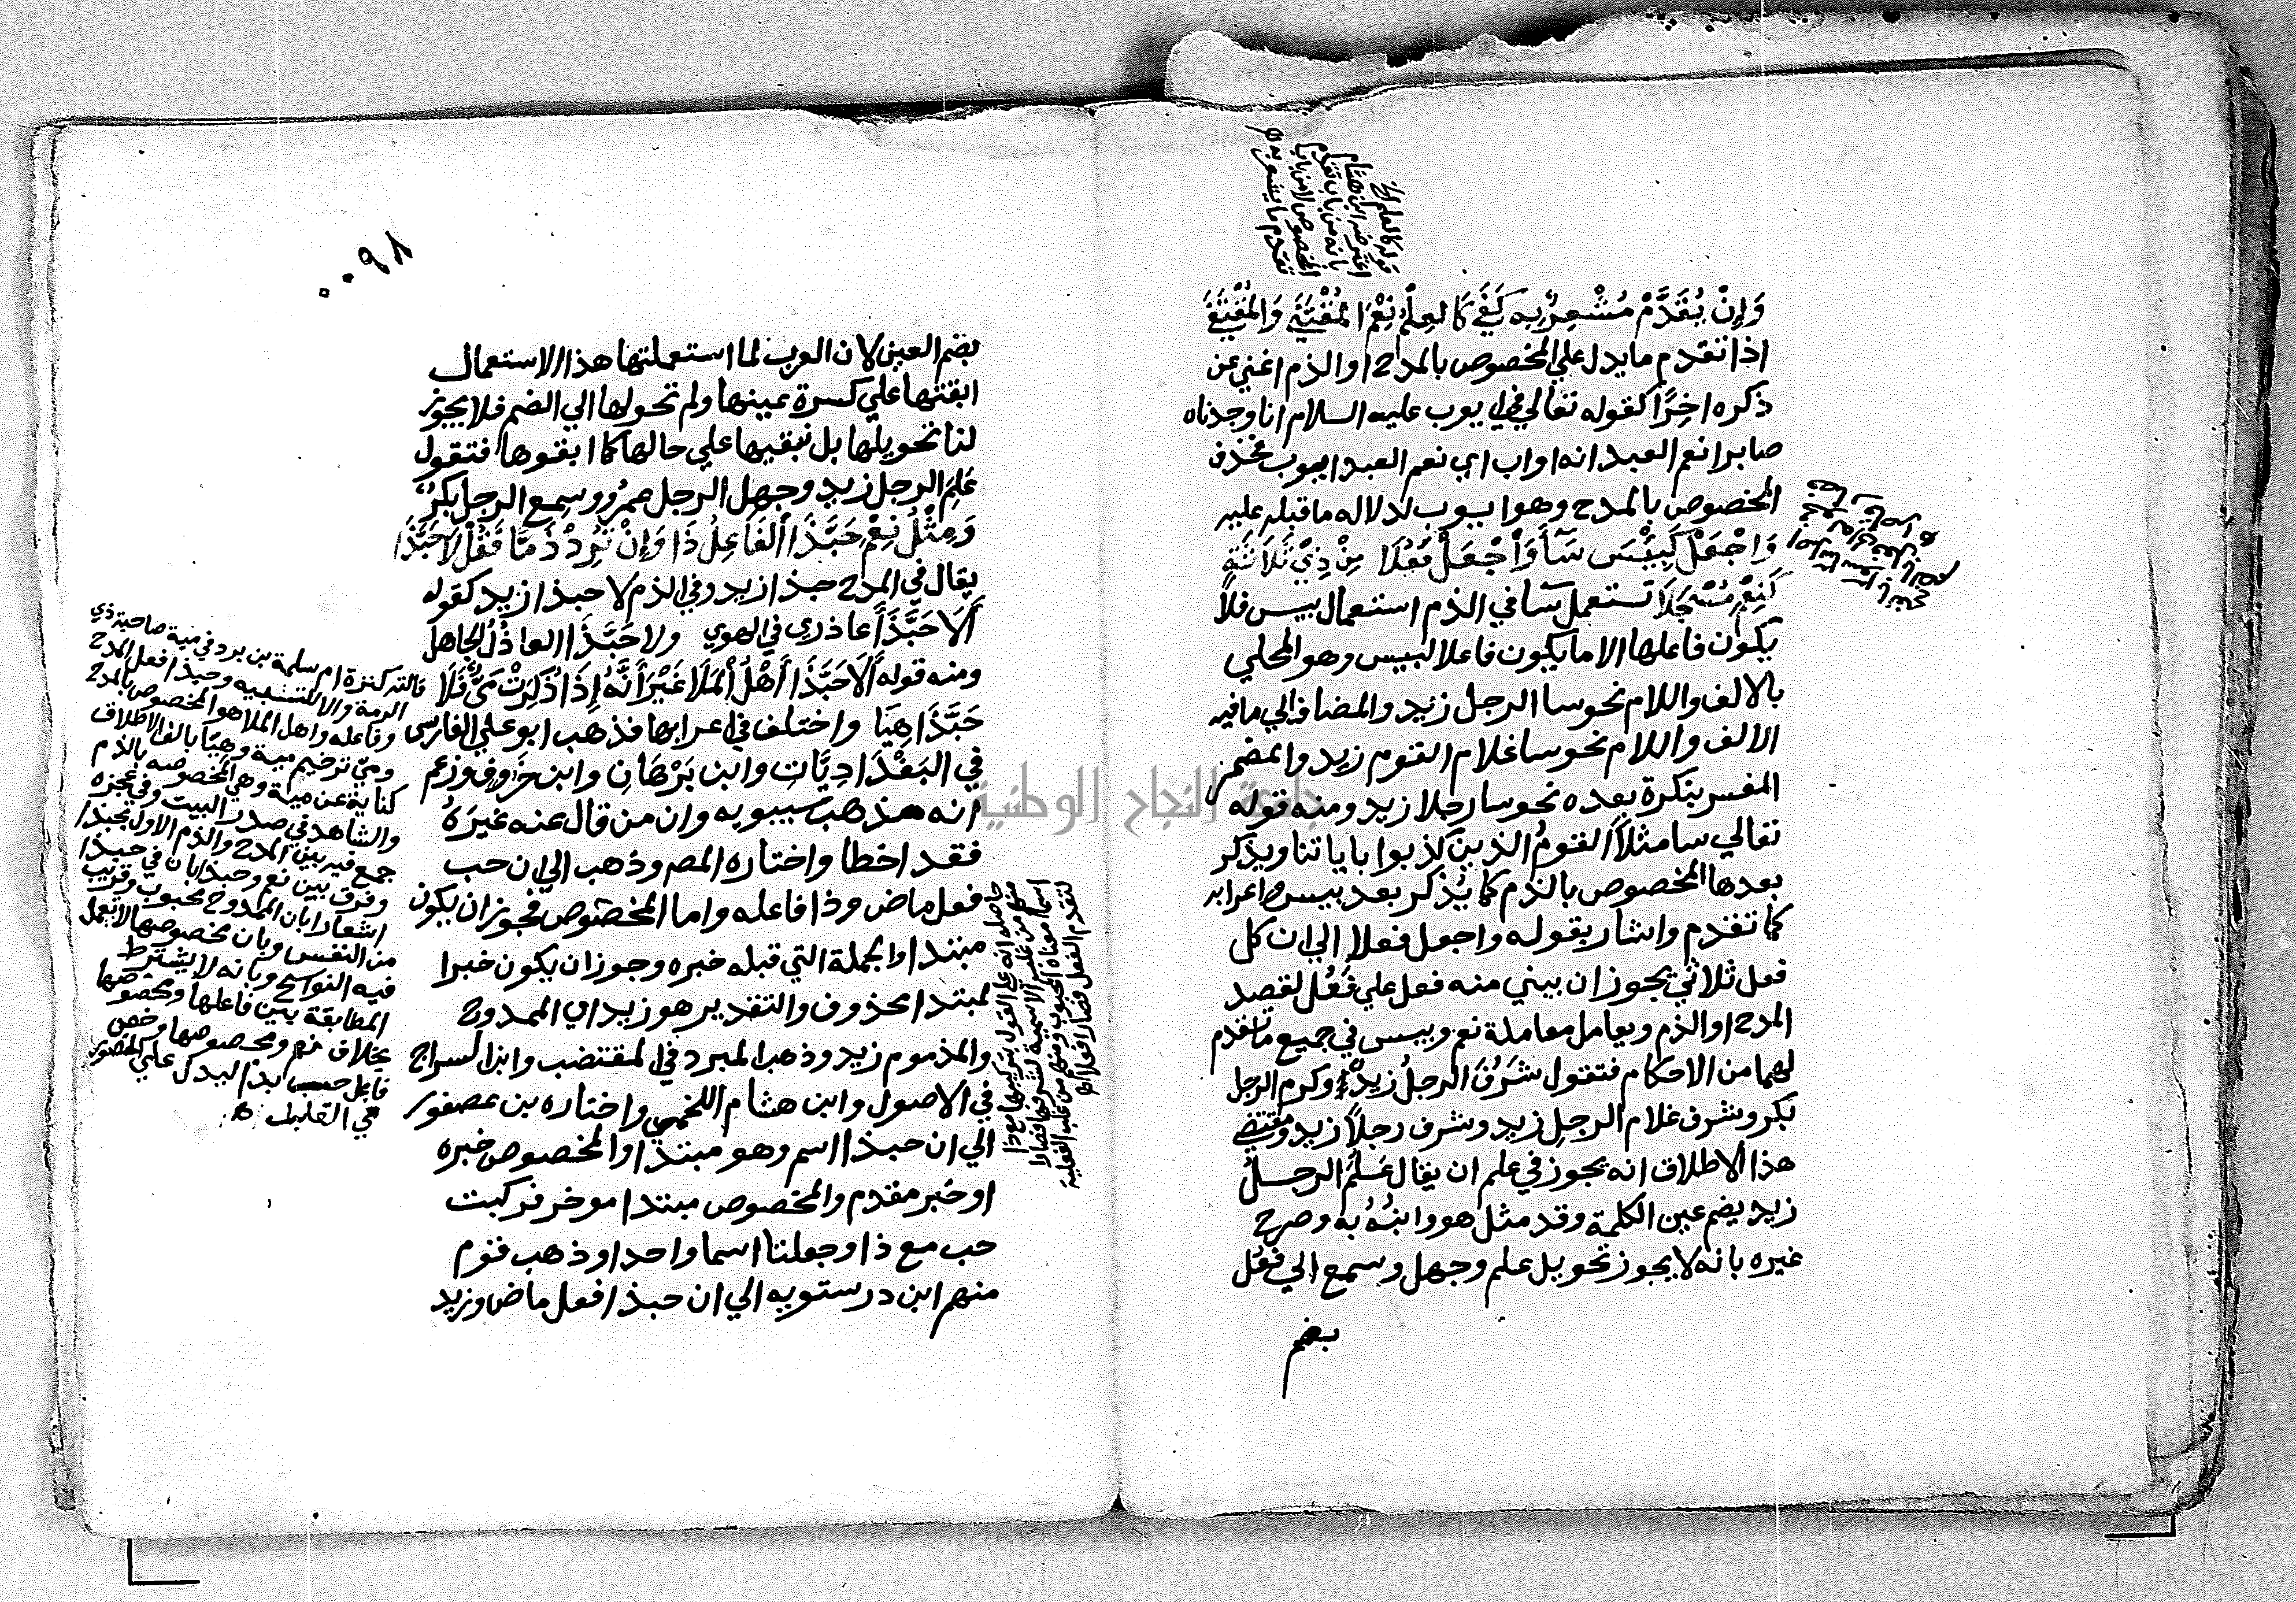 وَإِنْ يُقَدَّمْ مُشْعِرٌ بِهِ كَفَى كَالعِلْمُ نِعْمَ المُقْتَنَى وَالمُقْتَفَى
اذا تقدم ما يدل علي المخصوص بالمدح او الذم اغني عن
ذكره اخرًا كقوله تعالي في ايوب عليه السلام انا وجدناه
صابرا نعم العبد انه اواب اي نعم العبد ايوب فحذف
المخصوص بالمدح وهو ايوب لدلاله ما قبله عليه
وَاجْعَلْ كَبِئْسَ سَآءَ وَاجْعَلْ فَعُلَا مِنْ ذِيْ ثَلَاثَةٍ
كَنِعْمَ مُسْجَلَا تستعمل سآ في الذم استعمال بيس فلا
يكون فاعلها الا ما يكون فاعلا لبيس وهو المحلي
بالالف واللام نحو سا الرجل زيد والمضاف الي ما فيه
الالف واللام نحو سا غلام القوم زيد والمضمر
المفسر بنكرة بعده نحو سا رجلا زيد ومنه قوله
تعالي سا مثلاً القومُ الذينَ كذبوا باياتنا ويذكر
بعدها المخصوص بالذم كما يُذكر بعد بيس واعرابه
كما تقدم واشار بقوله واجعل فعلا الي ان كل
فعل ثلاثي يجوز ان يبني منه فعل علي فَعُل لقصد
المدح او الذم ويعامل معاملة نعم وبيس في جميع ما تقدم
لهما من الاحكام فتقول شَرُفَ الرجلُ زيدٌ وكرم الرجل
بكر وشرف غلام الرجل زيد وشرف رجلاً زيد ومقتضي
هذا الاطلاق انه يجوز في علم ان يقال عَلُمَ الرجلُ
زيد بضم عين الكلمة وقد مثل هو وابنُهُ به وصرح
غيره بانه لا يجوز تحويل علم وجهل وسمع الي فعُل
بضم
٠٠٩٨
بضم العين لان العرب لما استعملتها هذا الاستعمال
ابقتها علي كسرة عينها ولم تحولها الي الضم فلا يجوز
لنا تحويلها بل نبقيها علي حالها كما ابقوها فتقول
عَلِمَ الرجل زيد وجهل الرجل عمرٌو وسمع الرجل بكرٌ
وَمِثْلُ نِعْمَ حَبَّذَا الفَاعِلُ ذَا وَإِنْ تُرِدْ ذَمّاً فَقُلْ لَا حَبَّذَا
يقال في المدح حبذا زيد وفي الذم لا حبذا زيد كقوله
أَلَا حَبَّذَا عاذري في الهوي ولا حَبَّذَا العاذلُ الجاهل
ومنه قوله أَلَا حَبَّذَا أَهْلُ المَلَا غَيْرَ أَنَّهُ إِذَا ذُكِرَتْ مَيٌّ فَلَا
حَبَّذَا هِيَا واختلف في اعرابها فذهب ابو علي الفارسي
في البَغْدَادِيَّاتِ وابن بَرْهَانِ وابن خروف وزعم
انه مذهب سيبويه وان من قال عنه غيرَهُ
فقد اخطا واختاره المص وذهب الي ان حب
فعل ماض وذا فاعله واما المخصوص فجوز ان يكون
مبتدا والجملة التي قبله خبره وجوز ان يكون خبرا
لمبتدا محذوف والتقدير هو زيد اي الممدوح
والمذموم زيد وذهب المبرد في المقتضب وابن السراج
في الاصول وابن هشام اللخمي واختاره بن عصفور
الي ان حبذا اسم وهو مبتدا والمخصوص خبره
او خبر مقدم والمخصوص مبتدا موخر فركبت
حب مع ذا وجعلتا اسما واحدا وذهب قوم
منهم ابن درستويه الي ان حبذا فعل ماض وزيد
قالته كنزة ام سلمة بن برد في مية صاحبة ذي
الرمة والا للتنبيه وحبذا فعل المدح
وفاعله واهل الملا هو المخصوص بالمدح
ومي ترخيم مية وهيا بالف الاطلاق
كناية عن مية وهي المخصوصه بالذم
والشاهد في صدر البيت وفي عجزه
جمع فيه بين المدح والذم الاول بحبذا
وفرق بين نعم وحبذا بان في حبذا
اشعارا بان الممدوح محبوب وقريب
من النفس وبان مخصوصها لا تعمل
فيه النواسخ وبانه لا يشترط
المطابقة بين فاعلها ومخصوصها
بخلاف نعم ومخصوصها وخص
فاعل حب بذا ليدل علي الحضور
في القلب
جامعة النجاح الوطنية